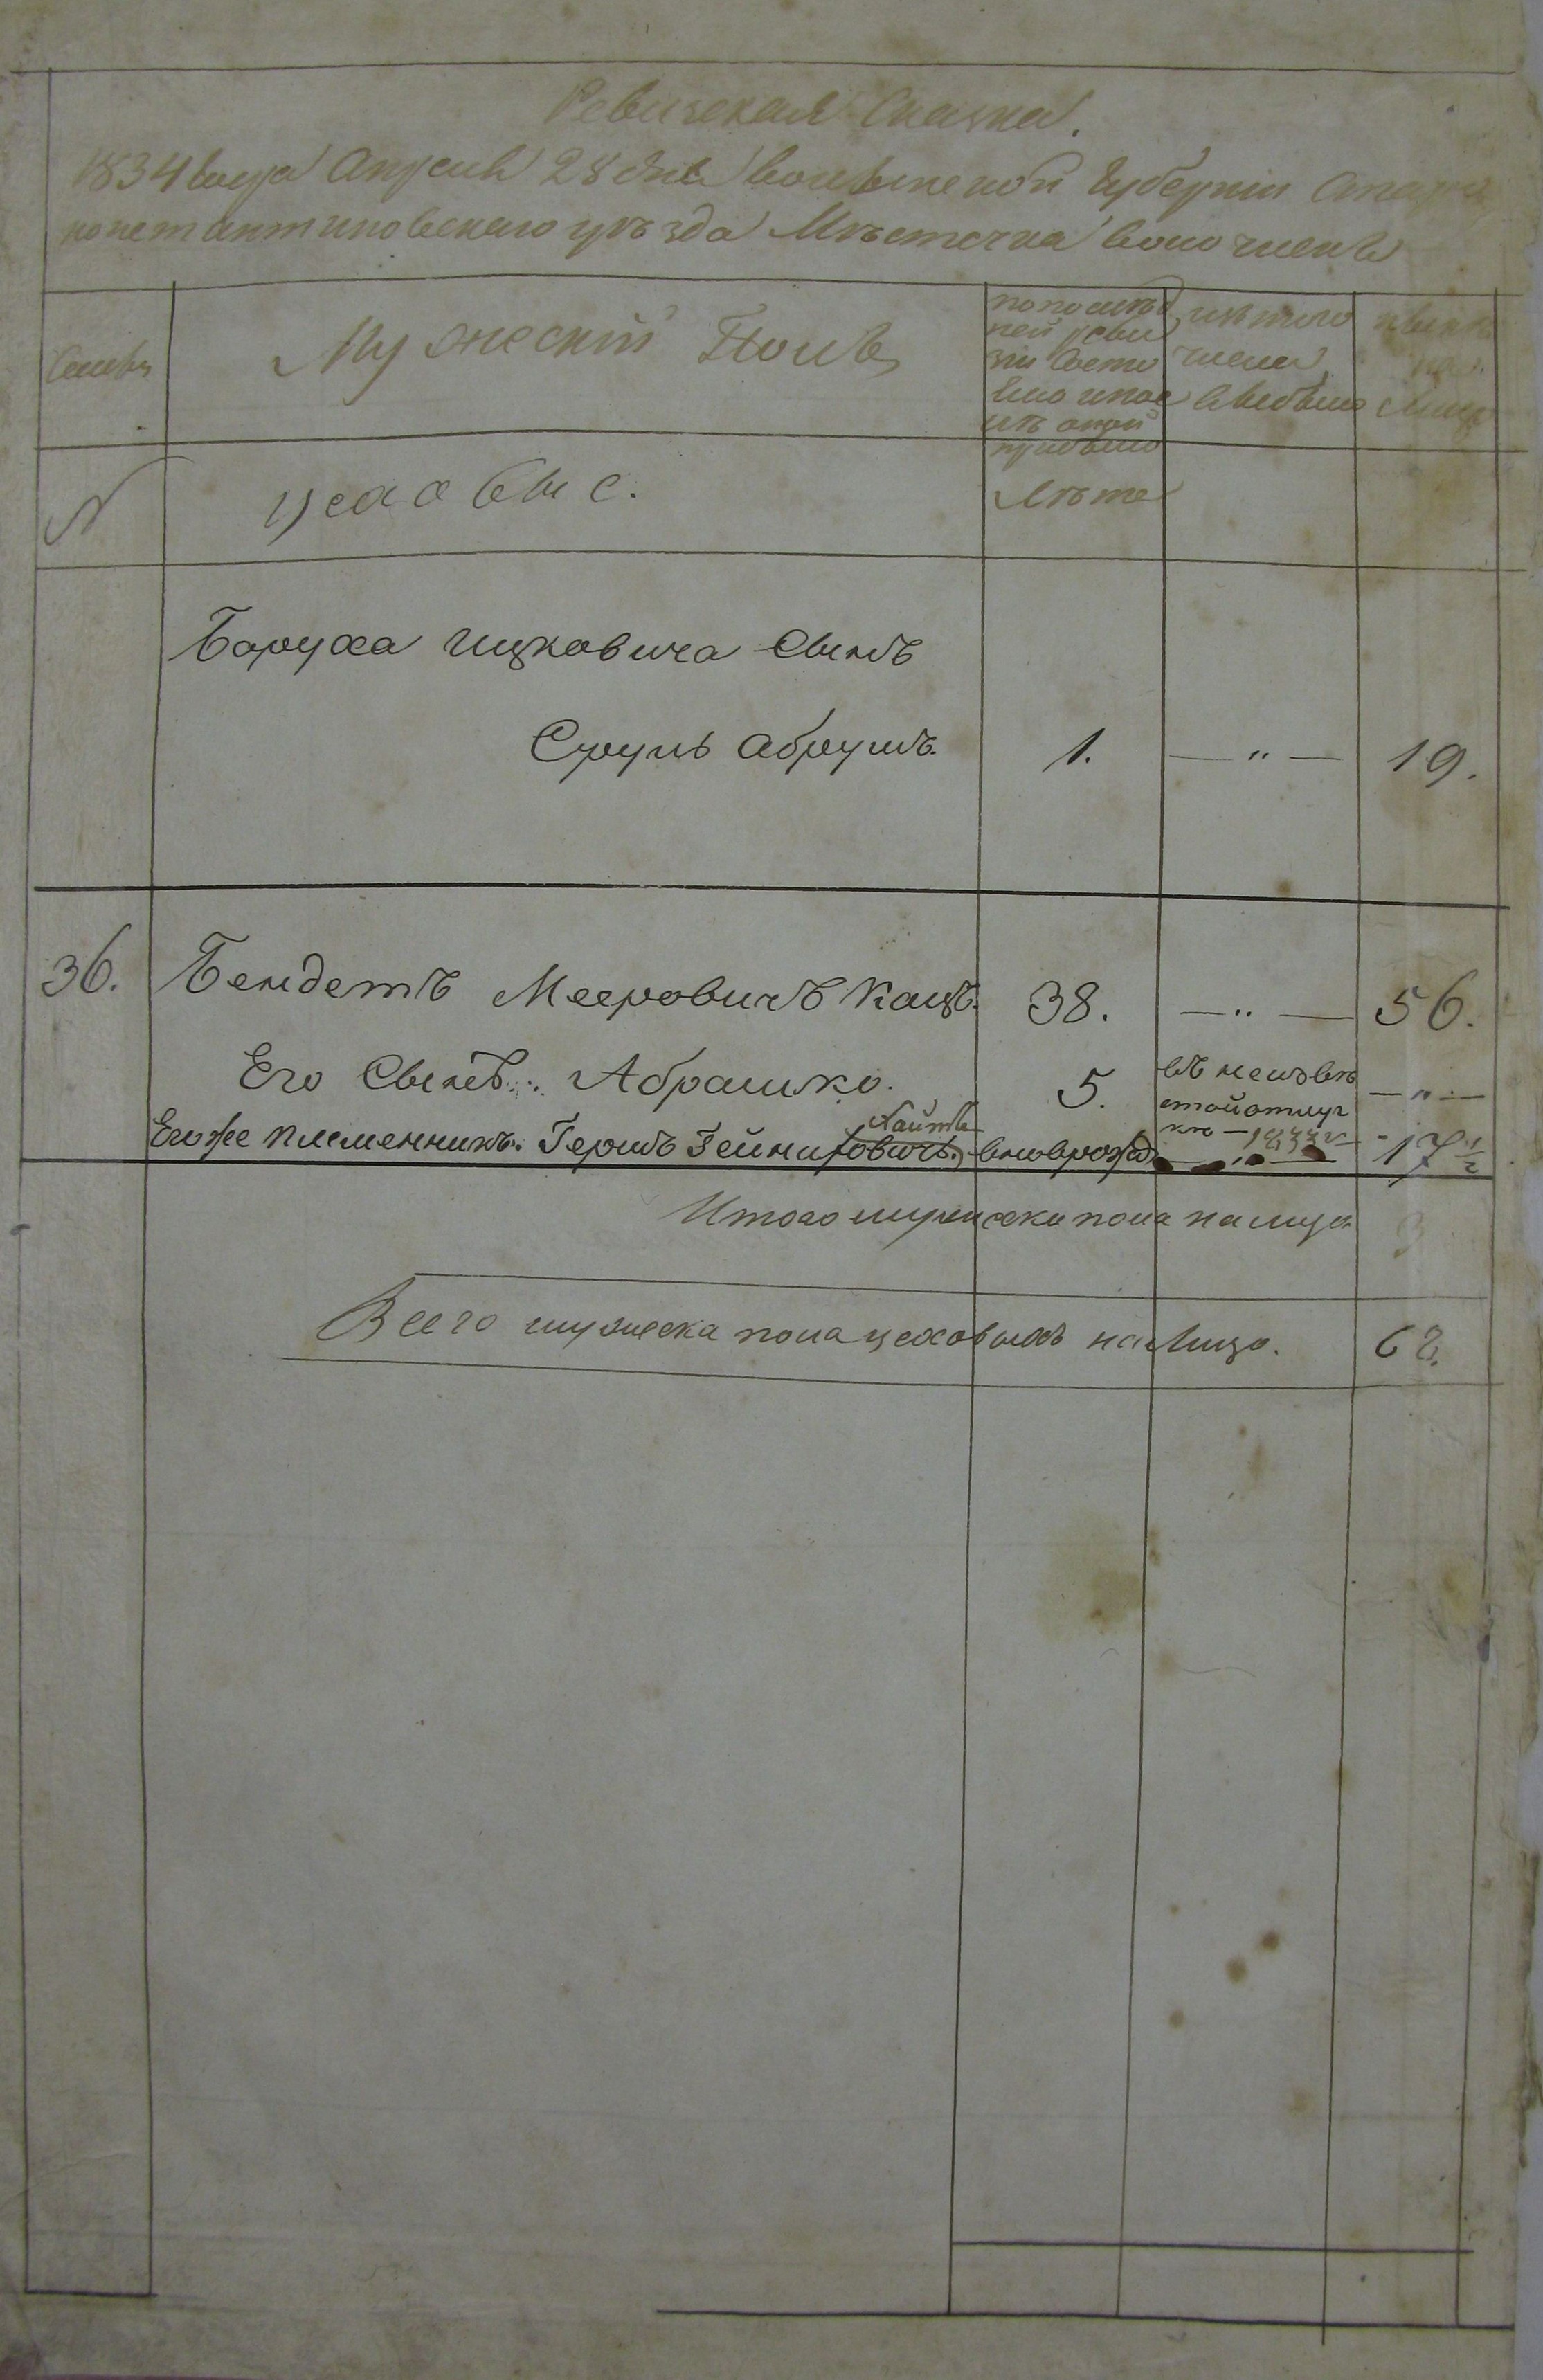 Ревизская Сказка.
1834 года Апреля 28 дня Волынской Губернии Старо
константиновскаго уѣзда Мѣстечка Волочискъ
Семьи Мужеский Полъ
по послѣд
ней реви
зии состо
яло и пос
лѣ оной
прибыло
изъ того
числа
выбыло
нынѣ
на
лицо
N цеховые. Лѣта
Баруха Ицковича Сынъ
Сруль Абрумъ. 1. — „ — 19.
36. Бендетъ Мееровичъ Кацъ. 38. — „ — 56.
Его Сынъ Абрашко. 5. въ неизвѣ
стной отлуч
кѣ — 1833 г — „ —
Его же племенникъ. Гершъ вновърожд — „ — 17 1/2
Итого мужеска пола налицо 3
Всего мужеска пола цеховыхъ налицо. 62.